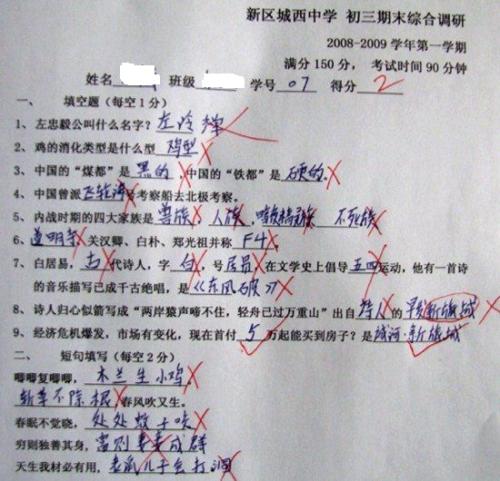 新区城西中学 初三期末综合调研
2008-2009学年第一学期
满分150分， 考试时间90分钟
姓名 班级 学号 07 得分 2
一、 填空题（每空1分）
1、左忠毅公叫什么名字？左冷禅
2、鸡的消化类型是什么型 鸡型
3、中国的“煤都”是 黑的 ，中国的“铁都”是 硬的。
4、中国曾派 飞轮海 号考察船去北极考察。
5、内战时期的四大家族是 兽族 人族、暗夜精灵族 不死族
6、道明寺 关汉卿、白朴、郑光祖并称 F4 。
7、白居易，古 代诗人，字 白，号 居易 在文学史上倡导 五四 运动，他有一首诗
的音乐描写已成千古绝唱，是《东风破》
8、诗人归心似箭写成“两岸猿声啼不住，轻舟已过万重山”出自 诗人 的 新旗城
9、经济危机爆发，市场有变化，现在首付 5 万起能买到房子？是 新旗城
二、 短句填写（每空2分）
唧唧复唧唧，木兰生小鸡
斩草不除根，春风吹又生。
春眠不觉晓，处处蚊子咬
穷则独善其身，富则妻妾成群
天生我材必有用，老鼠儿子会打洞